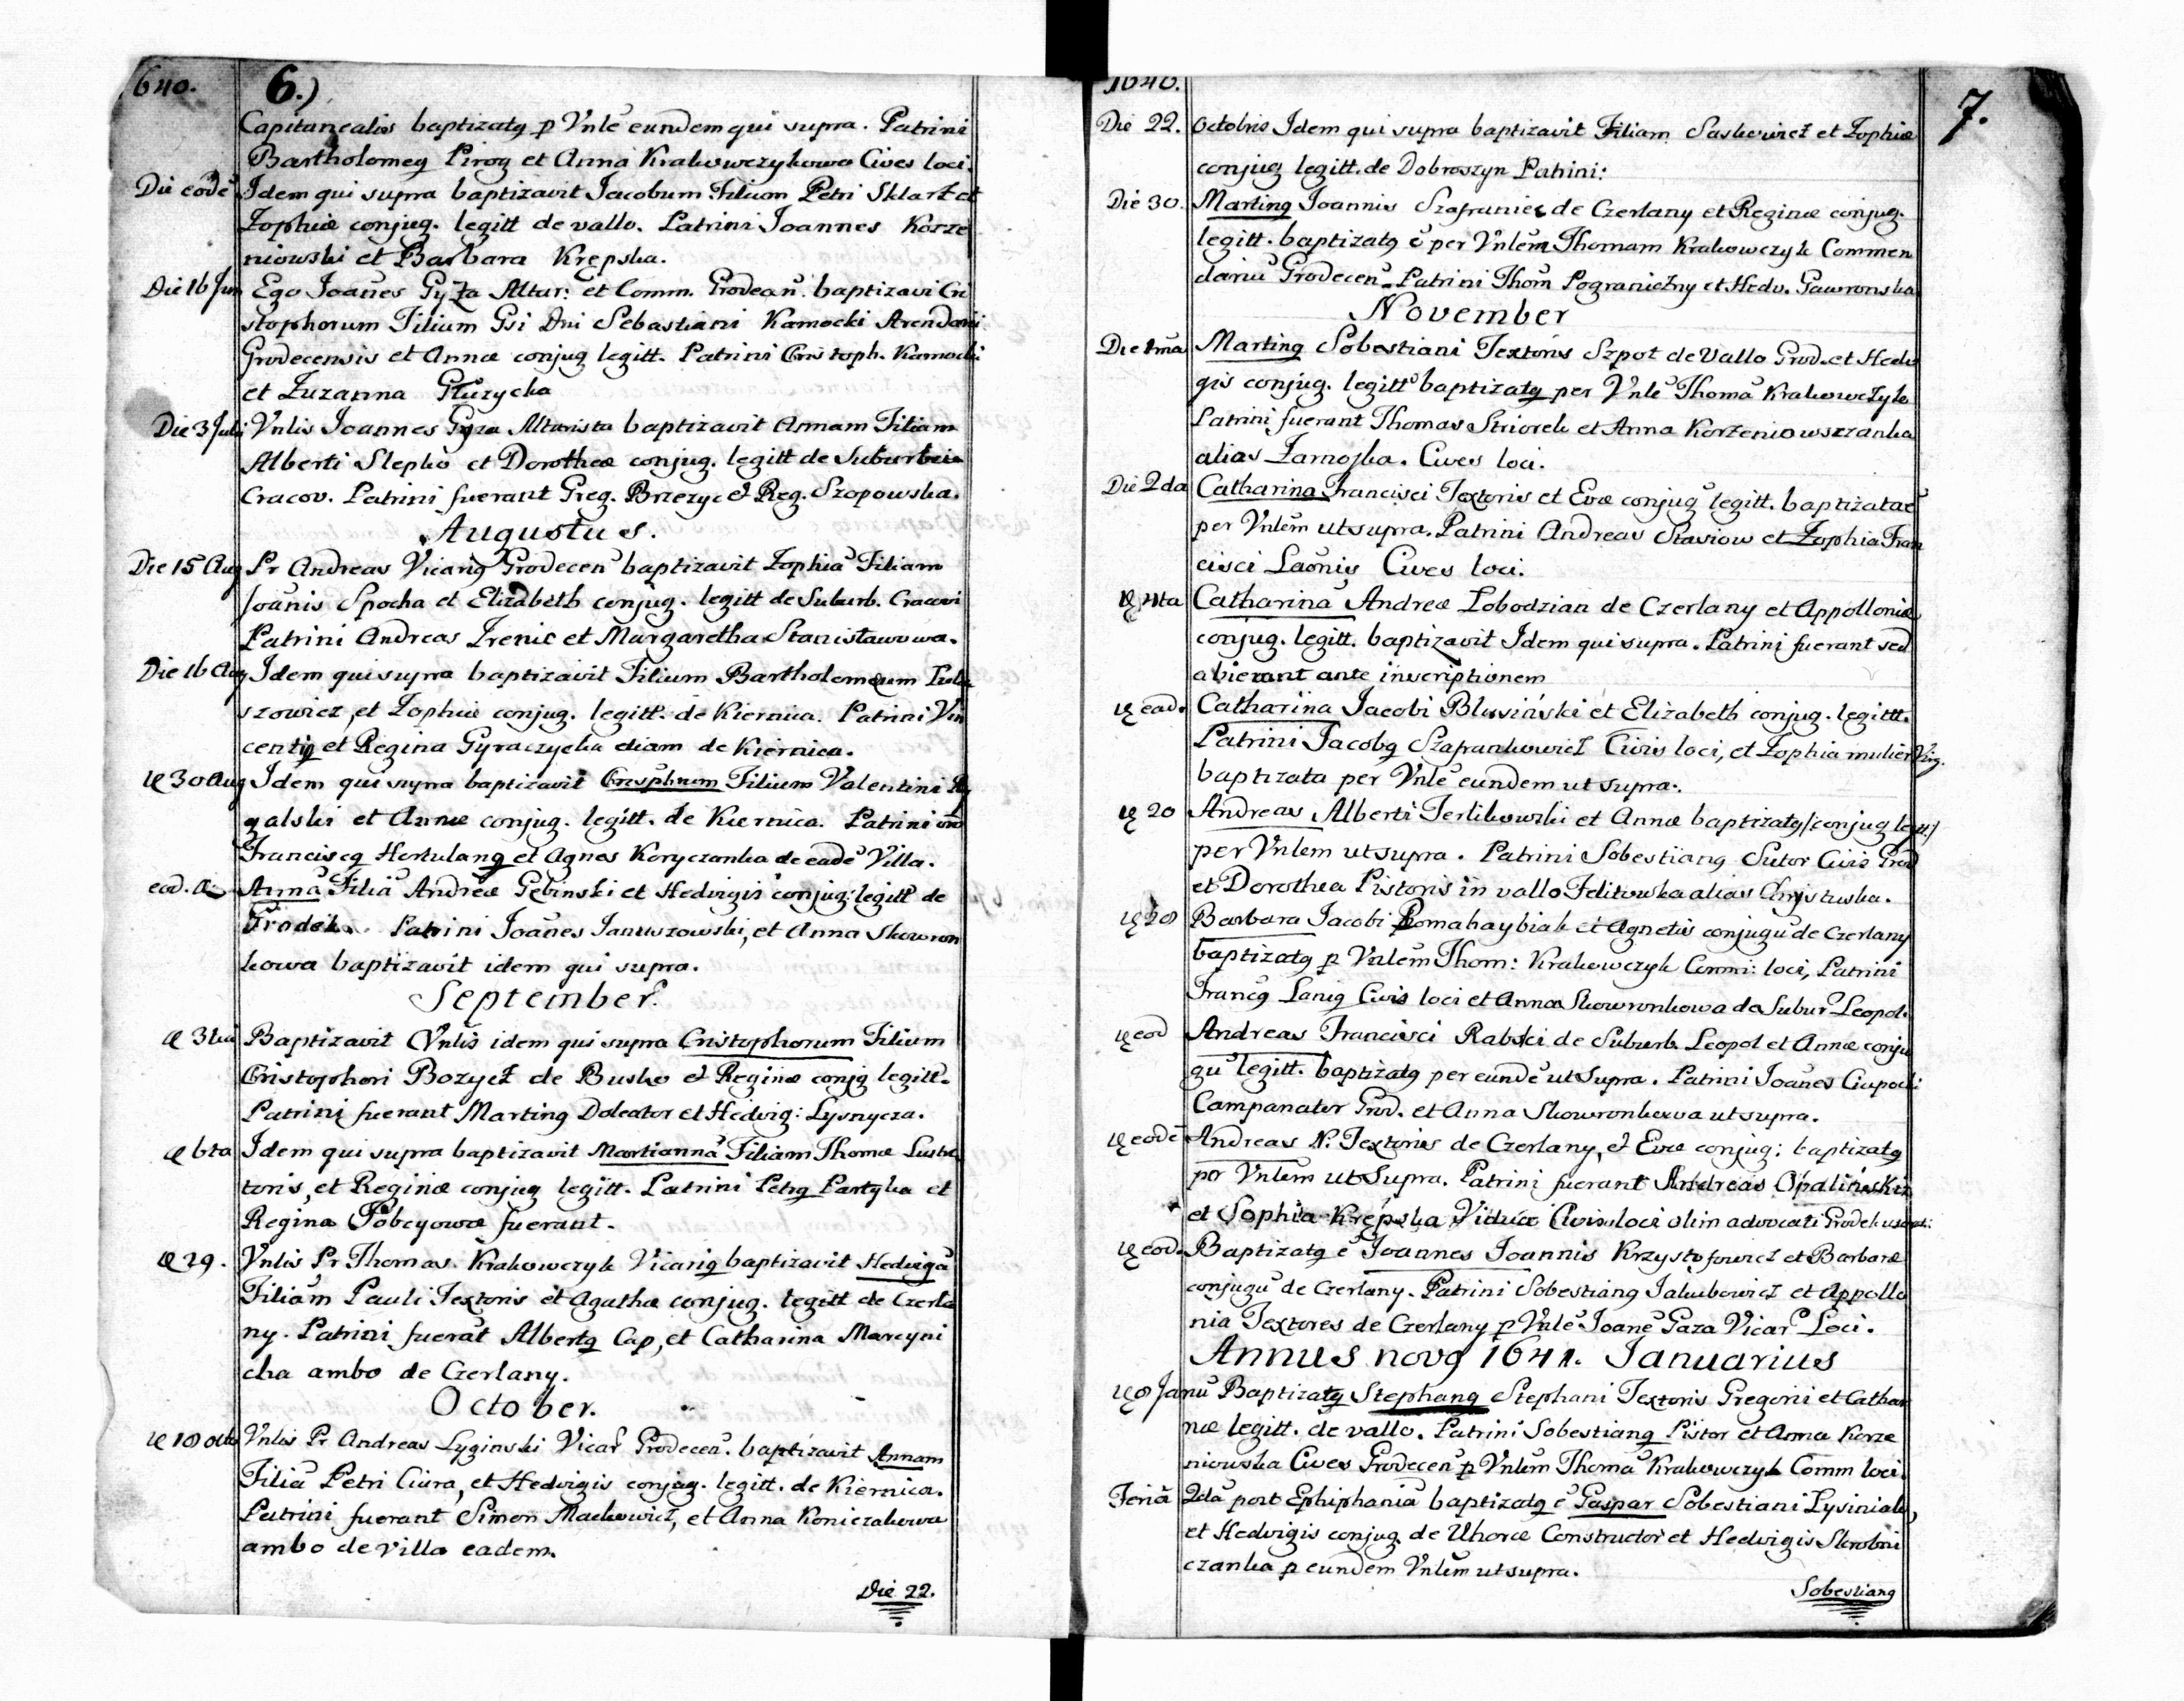 640. 6.)
Capitanealis baptizatg p Vnle eundem qui supra. Patrini
Bartholomeg Pirog et Anna Krakowczykowa Cives loci.
Die eode Idem qui supra baptizavit Jacobum Filium Petri Sklarz et
Zophiæ conjug. legitt de vallo. Patrini Joannes Korze
niowski et Barbara Krępska.
Die 16 Jun Ego Joanes Gyza Altar: et Comm. Grodecan. baptizavi Cri
stophorum Filium Gsi Dni Sebastiani Kamocki Arendarii
Grodecensis et Annæ conjug legitt. Patrini Cristoph. Kamocki
et Zuzanna Głuzycka
Die 3 Juli Vnlis Joannes Gyza Altarista baptizavit Annam Filiam
Alberti Slepko et Dorotheæ conjug. legitt de Suburbio
Cracov. Patrini fuerant Greg. Brzezyc et Reg. Szopowska.
Augustus.
Die 15 Aug Pr Andreas Vicarig Grodecen baptizavit Zophia Filiam
Joanis Spocha et Elizabeth conjug. legitt de Suburb. Cracovi
Patrini Andreas Irenic et Margaretha Stanisławowa.
Die 16 Aug Idem qui supra baptizavit Filium Bartholemæum
szowicz, et Zophiæ conjug. legitt. de Kiernica. Patrini Vin
centig et Regina Gyraczycka etiam de Kiernica.
30 Aug Idem qui supra baptizavit Crisphnum Filium Valentini
galski et Annæ conjug. legitt. de Kiernica. Patrini
Franciscg Herkulang et Agnes Koryczanka de eade Villa.
eod. Anna Filia Andreæ Gębinski et Hedvigis conjug: legitt de
Grodek. Patrini Joanes Januszowski, et Anna Skowron
kowa baptizavit idem qui supra.
September.
3tia Baptizavit Vnlis idem qui supra Cristophorum Filium
Cristophori Bozycz de Busko et Reginæ conjg legitt.
Patrini fuerant Marting Doleator et Hedvig: Lysnycza.
6ta Idem qui supra baptizavit Martianna Filiam Thomæ
toris, et Reginæ conjug legitt. Patrini Petrg Partyka et
Regina Pobeyowa fuerant.
29. Vnlis Pr Thomas Krakowczyk Vicarig baptizavit Hedviga
Filiam Pauli Textoris et Agathæ conjug. legitt de Czerla
ny. Patrini fuerat Albertg Cap, et Catharina Marcyni
cha ambo de Czerlany.
October.
18 octo Vnlis Pr Andreas Lyginski Vicar Grodecen. baptizavit Annam
Filia Petri Ciura, et Hedvigis conjug. legitt. de Kiernica.
Patrini fuerant Simon Mackowicz, et Anna Koniczakowa
ambo de villa eadem.
Die 22.
1640. 7.
Die 22. Octobris Idem qui supra baptizavit Filiam Saskowicz et Zophiæ
conjug legitt. de Dobroszyn Patrini:
Die 30. Marting Joannis Szafraniec de Czerlany et Reginæ conjug.
legitt. baptizatg e per Vnlem Thomam Krakowczyk Commen
dariu Grodecen. Patrini Thom Pograniczny et Hedv. Gawronska
November
Die 1ma Marting Sobestiani Textoris Szpot de Vallo Grod. et Hedv
gis conjug. legitt baptizatg per Vnle Thoma Krakowczyk
Patrini fuerant Thomas Striorek et Anna Korzeniowszczanka
alias Zamojska. Cives loci.
Die 2da Catharina Francisci Textoris et Evæ conjug legitt. baptizatae
per Vnlem ut supra. Patrini Andreas Stasiow et Zophia Fran
cisci Laonis Cives loci.
4ta Catharina Andreæ Łobodzian de Czerlany et Appolloniæ
conjug. legitt. baptizavit Idem qui supra. Patrini fuerant sed
abierant ante inscriptionem
ead. Catharina Jacobi Blusiński et Elizabeth conjug. legittt.
Patrini Jacobg Szafrankowicz Civis loci, et Zophia mulier Virg.
baptizata per Vnle eundem ut supra.
20 Andreas Alberti Terlikowski et Annæ baptizatg (conjug legtt)
per Vnlem ut supra. Patrini Sobestiang Sutor Civis Grod
et Dorothea Pistoris in vallo Felitowka alias Chrystuska.
28 Barbara Jacobi Pomahaybiak et Agnetis conjugu de Czerlany
baptizatg p Vnlem Thom: Krakowczyk Comm: loci, Patrini
Francg Lanig Civis loci et Anna Skowronkowa de Subur Leopol.
eod Andreas Francisci Rabski de Suburb. Leopol et Annæ conju
gu legitt. baptizatg per eunde ut Supra. Patrini Joanes Ciapocki
Campanator Grod. et Anna Skowronkowa ut supra.
eode Andreas N. Textoris de Czerlany, et Evæ conjug: baptizatg
per Vnlem ut Supra. Patrini fuerant Andreas Opalinski
et Sophia Krępska Vidua Civis loci olim advocati Grodek
eod. Baptizatg e Joannes Joannis Krzysztofowicz et Barbaræ
conjugu de Czerlany. Patrini Sobestiang Jakubowicz et Appollo
nia Textores de Czerlany p Vnle Joane Gaza Vicar Loci.
Annus novg 1641. Januarius
8 Janu Baptizatg Stephang Stephani Textoris Gregorii et Catha
næ legitt. de vallo. Patrini Sobestiang Pistor et Anna Korze
niowska Cives Grodecen p Vnlem Thoma Krakowczyk Comm loci.
Feria 2da post Ephiphania baptizatg e Gaspar Sobestiani Lysiniak,
et Hedvigis conjug de Uhorce Constructor et Hedvigis Skrobni
czanka p eundem Vnlem ut supra.
Sobestiang